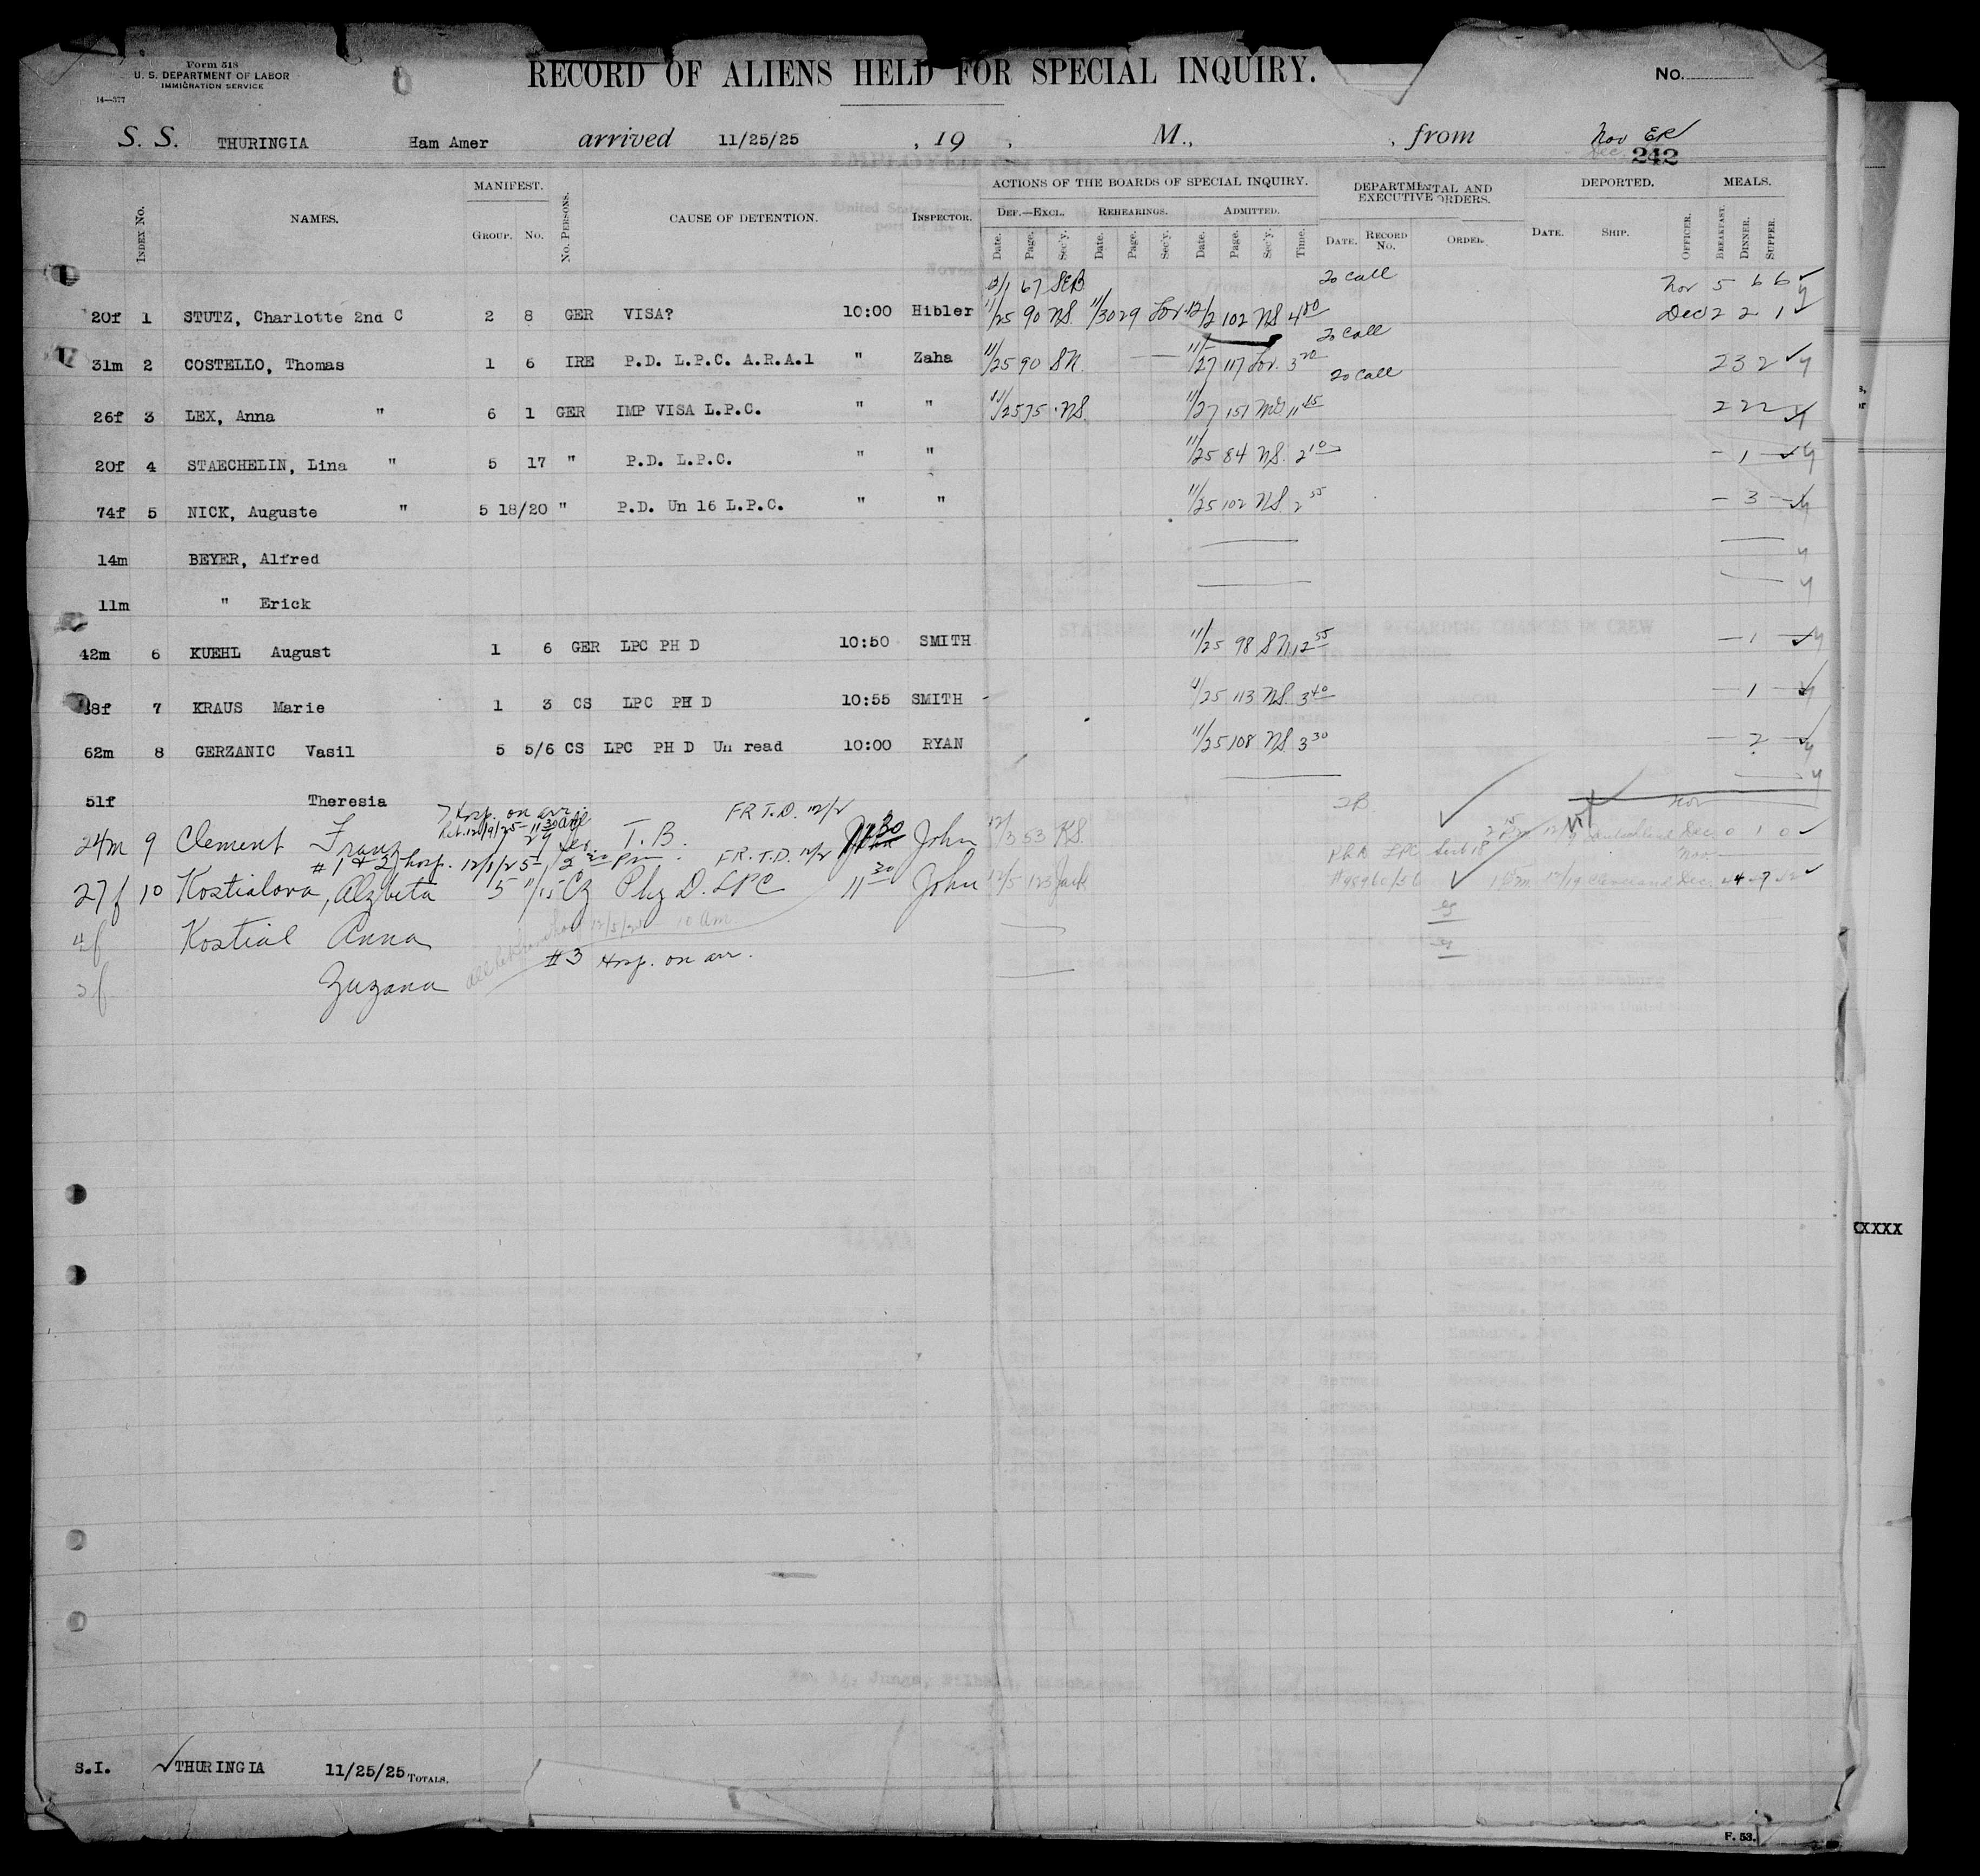 Form 518
U. S. DEPARTMENT OF LABOR
IMMIGRATION SERVICE
14—377
RECORD OF ALIENS HELD FOR SPECIAL INQUIRY.
No.
S. S. THURINGIA Ham Amer arrived 11/25/25 , 19 , M., , from Nov ER
Dec 242
INDEX No. NAMES. MANIFEST. GROUP. No. No. PERSONS. CAUSE OF DETENTION. INSPECTOR. ACTIONS OF THE BOARDS OF SPECIAL INQUIRY. DEPARTMENTAL AND EXECUTIVE ORDERS. DEPORTED. MEALS.
DEF.—EXCL. REHEARINGS. ADMITTED.
Date. Page. Sec'y. Date. Page. Sec'y. Date. Page. Sec'y. Time. DATE. RECORD No. ORDER. DATE. SHIP. OFFICER. BREAKFAST. DINNER. SUPPER.
67 SEB To Call Nov 5 6 6
20f 1 STUTZ, Charlotte 2nd C 2 8 GER VISA? 10:00 Hibler 11/25 90 NS. 11/30 29 Lor 12/2 102 NS 4 00 Dec 2 2 1
To Call
31m 2 COSTELLO, Thomas 1 6 IRE P.D. L.P.C. A.R.A.1 " Zaha 11/25 90 SN. — 11/27 117 Lor. 3 20 2 3 2
To Call
26f 3 LEX, Anna " 6 1 GER IMP VISA L.P.C. " " 11/25 75 NS. 11/27 151 11 45 2 2 2
20f 4 STAECHELIN, Lina " 5 17 " P.D. L.P.C. " " 11/25 84 NS. 2 10 - 1 -
74f 5 NICK, Auguste " 5 18/20 " P.D. Un 16 L.P.C. " " 11/25 102 NS. 2 55 - 3 -
14m BEYER, Alfred
11m " Erick
42m 6 KUEHL August 1 6 GER LPC PH D 10:50 SMITH 11/25 98 SN. 12 55 - 1 -
38f 7 KRAUS Marie 1 3 CS LPC PH D 10:55 SMITH 11/25 113 NS. 3 40 - 1 -
62m 8 GERZANIC Vasil 5 5/6 CS LPC PH D Un read 10:00 RYAN 11/25 108 NS. 3 30 - 2 -
51f Theresia
Hosp. on arr. FR T.D. 12/2 Nov
24m 9 Clement Franz T.B. 11 30 John 12/3 53 KS. Dec. 0 1 0
# 1 & 2 hosp. 12/1/25 2 pm. FR. T.D. 12/2
27f 10 Kostialova, Alzbeta 5 11/15 Cz Phy D. LPC 11 30 John 12/5 123 Jack 12/19 Cleveland Dec. 4 7
4f Kostial Anna 12/5/25 10 am.
#3 Hosp. on arr.
2f Zuzana
XXXXX
S.I. THURINGIA 11/25/25 TOTALS.
F. 53.